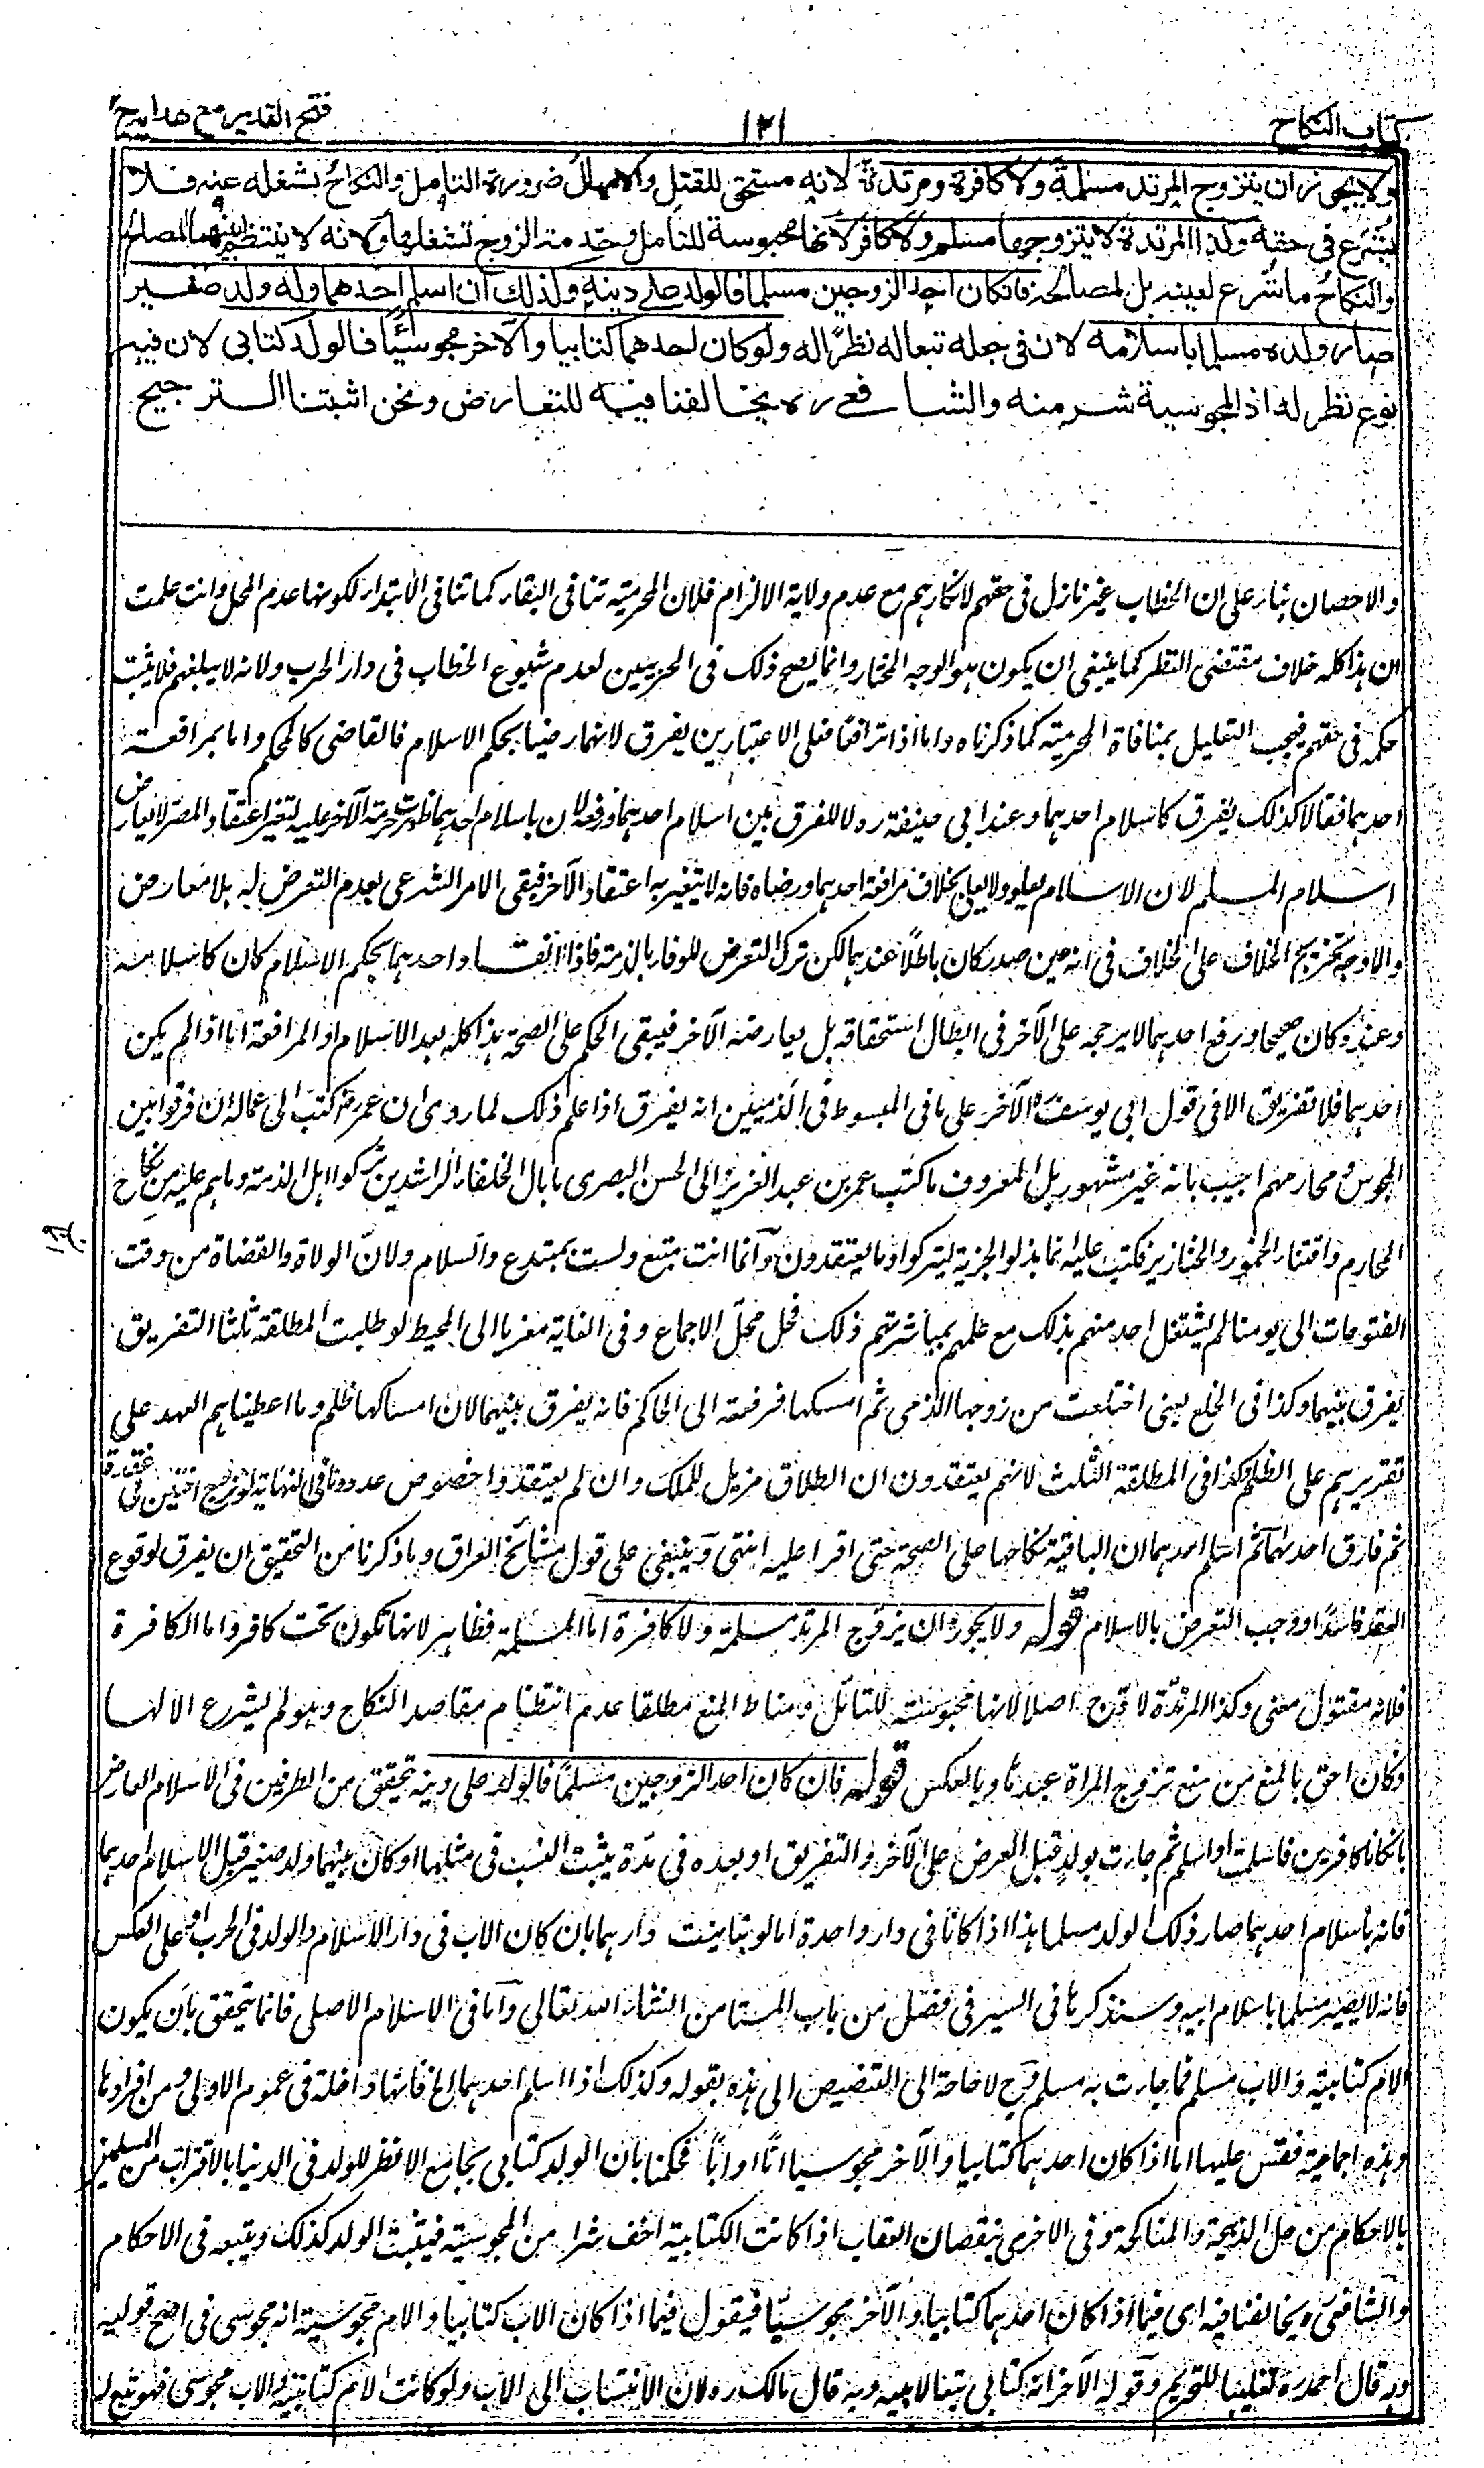 كتاب النكاح
١٢١
فتح القدير مع هدايہ ج٢
ولا يجوز ان يتزوج المرتد مسلمة ولا كافرة ومرتدة لانه مستحق للقتل والامهال ضرورة التأمل والنكاح يشغله عنه فلا
يشرع فى حقه وكذا المرتدة لا يتزوجها مسلم ولا كافر لانها محبوسة للتأمل وخدمة الزوج تشغلها ولانه لا ينتظم بينهما المصالح
والنكاح ما شرع لعينه بل لمصالحه فان كان احد الزوجين مسلما فالولد على دينه وكذلك ان اسلم احدهما وله ولد صغير
صار ولده مسلما باسلامه لان فى جعله تبعا له نظرا له ولو كان احدهما كتابيا والآخر مجوسيًا فالولد كتابى لان فيه
نوع نظر له اذ المجوسية شر منه والشافعى ره يخالفنا فيه للتعارض ونحن اثبتنا الترجيح
والاحصان بناء على ان الخطاب غير نازل فى حقهم لانكارهم مع عدم ولاية الالزام فلان المحرمية تنافى البقاء كما تنافى الابتداء لكونها عدم المحل وانت علمت
ان هذا كله خلاف مقتضى النظر كما ينبغى ان يكون هو الوجه المختار وانما يصح ذلك فى الحربيين لعدم شيوع الخطاب فى دار الحرب ولانه لا يبلغهم فلا يثبت
حكمه فى حقهم فيجب التعليل بمنافاة المحرمية كما ذكرناه واما اذا ترافعا فعلى الاعتبارين يفرق لانهما رضيا بحكم الاسلام فالقاضى كالمحكم واما بمرافعة
احدهما فقالا كذلك يفرق كاسلام احدهما وعند ابى حنيفة ره لا للفرق بين اسلام احدهما ورفعه لان باسلام احدهما ظهرت حرمة الآخر عليه لتغير اعتقاده المصر لا يعارض
اسلام المسلم لان الاسلام يعلو ولا يعلى بخلاف مرافعة احدهما ورضاه فانه لا يتغير به اعتقاد الآخر فيبقى الامر الشرعى بعدم التعرض له بلا معارض
والاوجه تخريج الخلاف على الخلاف فى انه حين صدر كان باطلا عندهما لكن ترك التعرض للوفاء بالذمة فاذا انقاد احدهما لحكم الاسلام كان كاسلامه
وعنده كان صحيحا ورفع احدهما لا يرجحه على الآخر فى ابطال استحقاقه بل يعارضه الآخر فيبقى الحكم على الصحة هذا كله بعد الاسلام او المرافعة اما اذا لم يكن
احدهما فلا تفريق الا فى قول ابى يوسف ره الآخر على ما فى المبسوط فى الذميين انه يفرق اذا علم ذلك لما روى ان عمر رض كتب الى عماله ان فرقوا بين
المجوس ومحارمهم اجيب بانه غير مشهور بل المعروف ما كتب عمر بن عبد العزيز الى الحسن البصرى ما بال الخلفاء الراشدين تركوا اهل الذمة وما هم عليه من نكاح
المحارم واقتناء الخمور والخنازير فكتب عليه انما بذلوا الجزية ليتركوا وما يعتقدون وانما انت متبع ولست بمبتدع والسلام ولان الولاة والقضاة من وقت
الفتوحات الى يومنا لم يشتغل احد منهم بذلك مع علمهم بمباشرتهم ذلك فحل محل الاجماع وفى الغاية معزيا الى المحيط لو طلبت المطلقة ثلثا التفريق
يفرق بينهما وكذا فى الخلع يعنى اختلعت من زوجها الذمى ثم امسكها فرفعته الى الحاكم فانه يفرق بينهما لان امساكها ظلم وما اعطيناهم العهد على
تقريرهم على الظلم وكذا فى المطلقة الثلث لانهم يعتقدون ان الطلاق مزيل للملك وان لم يعتقدوا خصوص عدده وما فى النهاية لو تزوج اختين فى عقدة
ثم فارق احدهما ثم اسلم احدهما ان الباقية نكاحها على الصحة حتى اقرا عليه انتهى وينبغى على قول مشائخ العراق وما ذكرنا من التحقيق ان يفرق لوقوع
العقد فاسدا ووجب التعرض بالاسلام قوله ولا يجوز ان يتزوج المرتد مسلمة ولا كافرة اما المسلمة فظاهر لانها تكون تحت كافر واما الكافرة
فلانه مقتول معنى وكذا المرتدة لا تزوج اصلا لانها محبوسة للتأمل ومناط المنع مطلقا عدم انتظام مقاصد النكاح وهو لم يشرع الا لها
وكان احق بالمنع من منع تزوج المراة عبدها وبالعكس قوله فان كان احد الزوجين مسلما فالولد على دينه يتحقق من الطرفين فى الاسلام العارض
بان كانا كافرين فاسلمت او اسلم ثم جاءت بولد قبل العرض على الآخر والتفريق او بعده فى مدة يثبت النسب فى مثلها او كان بينهما ولد صغير قبل الاسلام احدهما
فانه باسلام احدهما صار ذلك الولد مسلما هذا اذا كانا فى دار واحدة اما لو تباينت دارهما بان كان الاب فى دار الاسلام والولد فى الحرب او على العكس
فانه لا يصير مسلما باسلام ابيه وسنذكرها فى السير فى فصل من باب المستامن انشاء الله تعالى واما فى الاسلام الاصلى فانما يتحقق بان يكون
الام كتابية والاب مسلم فما جاءت به مسلم ثم لا حاجة الى التنصيص الى هذه بقوله وكذلك اذا اسلم احدهما الخ فانها داخلة فى عموم الاولى ومن افرادها
وهذه اجماعية فقس عليها اما اذا كان احدهما كتابيا والآخر مجوسيا اما او ابا فحكمنا بان الولد كتابى بجامع الانظر للولد فى الدنيا بالاقتراب من المسلمين
بالاحكام من حل الذبيحة والمناكحة وفى الاخرى بنقصان العقاب اذا كانت الكتابية اخف شرا من المجوسية فيثبت الولد كذلك ويتبعه فى الاحكام
والشافعى ره يخالفنا فيه اى فيما اذا كان احدهما كتابيا والآخر مجوسيا فيقول فيما اذا كان الاب كتابيا والام مجوسية انه مجوسى فى اصح قوليه
وبه قال احمد ره تغليبا للتحريم وقوله الآخر انه كتابى تبعا لابيه وبه قال مالك ره لان الانتساب الى الاب ولو كانت الام كتابية والاب مجوسى فهو تبع له